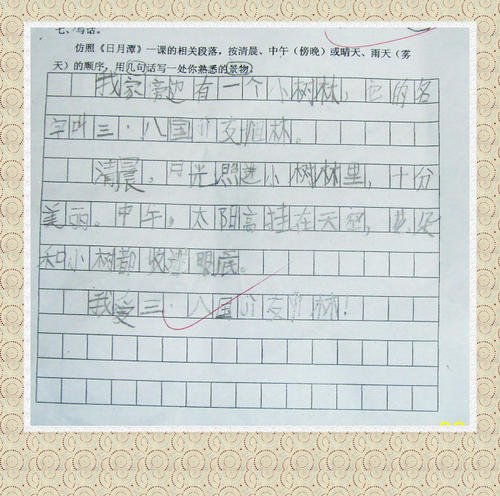 七、写话。
仿照《日月潭》一课的相关段落，按清晨、中午（傍晚）或晴天、雨天（雾
天）的顺序，用几句话写一处你熟悉的景物。
我家旁边有一个小树林，它的名
字叫三·八国际友谊林。
清晨，月光照进小树林里，十分
美丽。中午，太阳高挂在天空，花朵
和小树都收进眼底。
我爱三·八国际友谊林！